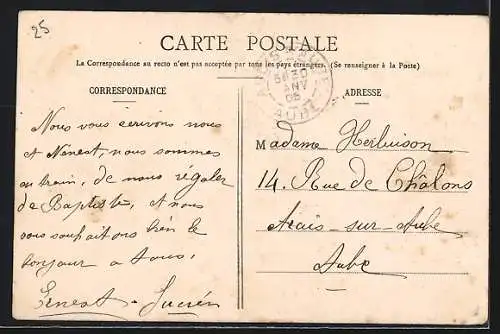 25
CARTE POSTALE
La Correspondance au recto n'est pas acceptée par tous les pays étrangers. (Se renseigner à la Poste)
CORRESPONDANCE
ADRESSE
AUBE
Nous vous écrivons nous
et Nenest, nous sommes
au train, de nous régaler
de Baptiste, et nous
vous souhaitons bien le
bonjour a tous,
Ernest - Lucien
Madame Herluison
14. Rue de Châlons
Arcis-sur-Aube
Aube